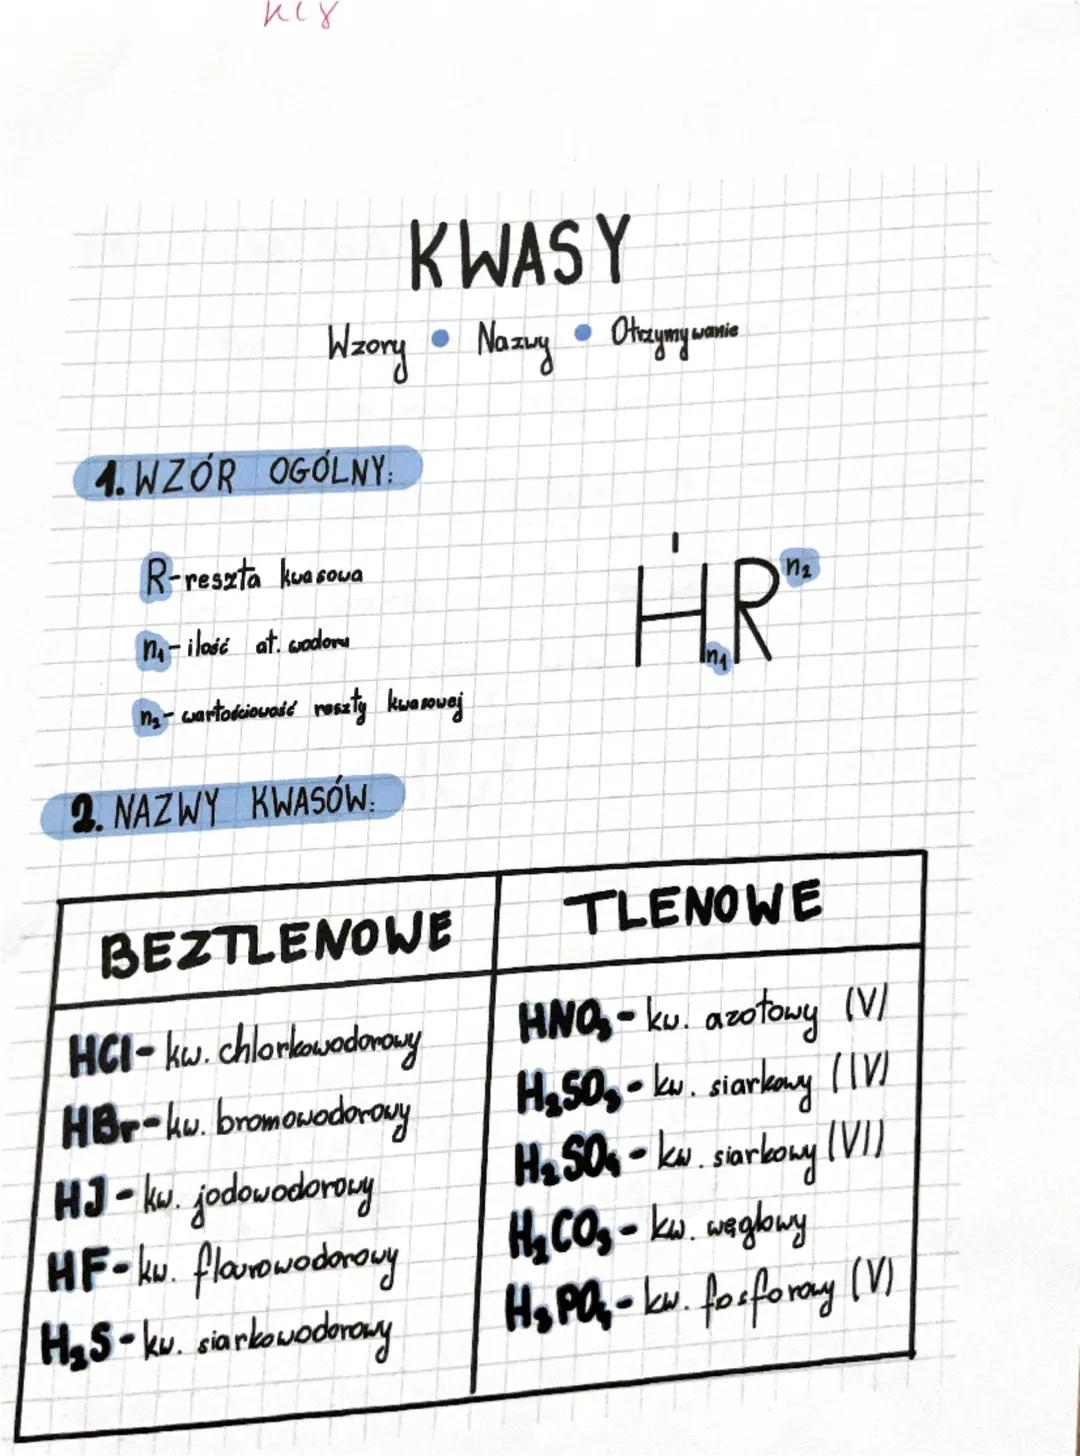 kl 8
KWASY
Wzory • Nazwy • Otrzymywanie
1. WZÓR OGÓLNY:
R-reszta kwasowa
n₁- ilość at. wodoru
n₂- wartościowość reszty kwasowej
I
Hn₁Rn₂
2. NAZWY KWASÓW:
BEZTLENOWE
HCl- kw. chlorkowodorowy
HBr- kw. bromowodorowy
HJ - kw. jodowodorowy
HF- kw. flourowodorowy
H₂S - kw. siarkowodorowy
TLENOWE
HNO₃ - kw. azotowy (V)
H₂SO₃ - kw. siarkowy (IV)
H₂SO₄ - kw. siarkowy (VI)
H₂CO₃ - kw. węglowy
H₃PO₄ - kw. fosforowy (V)